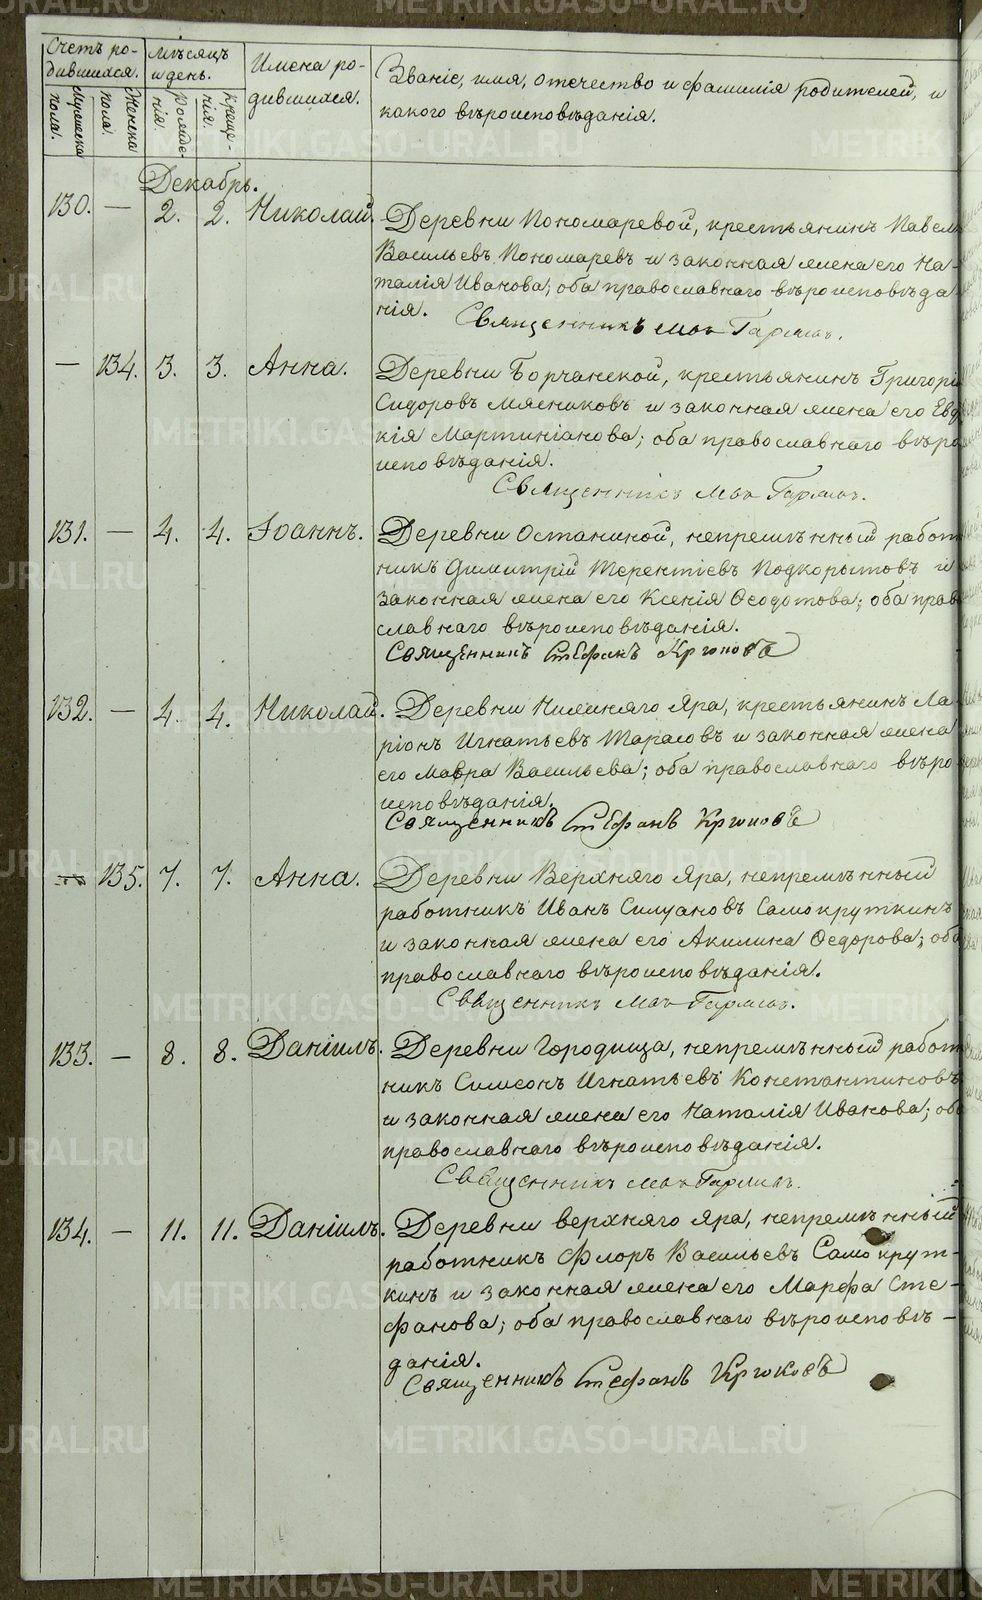 Счетъ ро-
дившихся.
Мужеска
пола.
Женска
пола.
Мѣсяцъ
и день.
Рожде-
нія.
Креще-
нія.
Имена ро-
дившихся.
Званіе, имя, отечество и фамилія родителей, и
какого вѣроисповѣданія.
Декабрь.
130. — 2. 2. Николай. Деревни Пономаревой, крестьянинъ Павелъ
Васильевъ Пономаревъ и законная жена его На-
талія Иванова; оба православнаго вѣроисповѣда
нія.
Священникъ
— 134. 3. 3. Анна. Деревни Борчанской, крестьянинъ Григорі
Сидоровъ Мясниковъ и законная жена его Евд
кія Мартиніанова; оба православнаго вѣро
исповѣданія.
Священникъ
131. — 4. 4. Іоаннъ. Деревни Останиной, непремѣнный работ
никъ Димитрій Терентіевъ Подкорытовъ и
законная жена его Ксенія Ѳеодотова; оба прав
славнаго вѣроисповѣданія.
Священникъ Стефанъ Крюковъ
132. — 4. 4. Николай. Деревни Нижняго Яра, крестьянинъ Ла-
ріонъ Игнатьевъ Тарасовъ и законная жена
его Мавра Васильева; оба православнаго вѣро-
исповѣданія.
Священникъ Стефанъ Крюковъ
— 135. 7. 7. Анна. Деревни Верхняго Яра, непремѣнный
работникъ Иванъ Силуановъ Самокруткинъ
и законная жена его Акилина Ѳедорова; оба
православнаго вѣроисповѣданія.
Священникъ
133. — 8. 8. Даніилъ. Деревни Городища, непремѣнный работ
никъ Симеонъ Игнатьевъ Константиновъ
и законная жена его Наталія Иванова; оба
православнаго вѣроисповѣданія.
Священникъ
134. — 11. 11. Даніилъ. Деревни верхняго яра, непремѣнный
работникъ Флоръ Васильевъ Самокрут-
кинъ и законная жена его Марфа Сте-
фанова; оба православнаго вѣроисповѣ-
данія.
Священникъ Стефанъ Крюковъ
METRIKI.GASO-URAL.RU